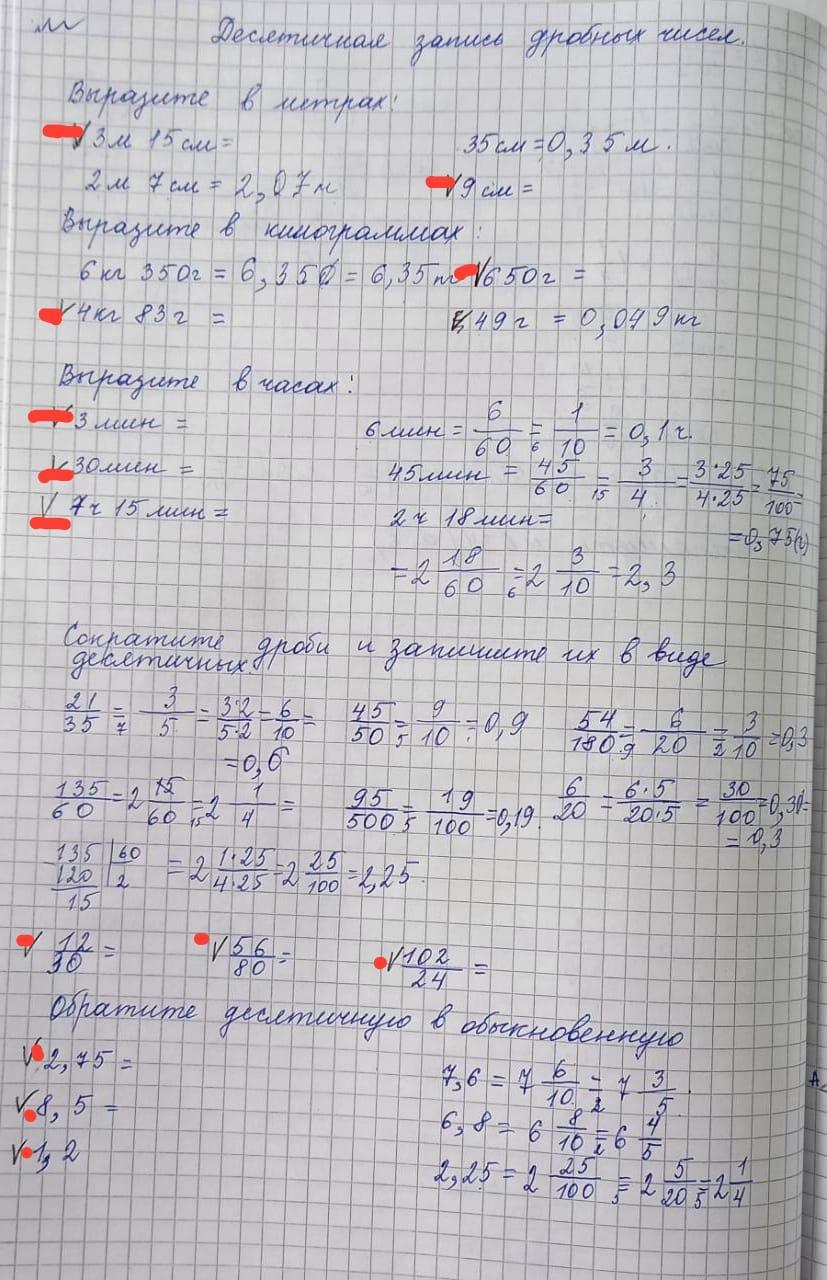 Десятичная запись дробных чисел.
Выразите в метрах:
√ 3м 15см = 35см = 0,35м.
2м 7см = 2,07м √ 9см =
Выразите в килограммах:
6кг 350г = 6,350 = 6,35кг √ 650г =
√ 4кг 83г = 49г = 0,049кг
Выразите в часах:
√ 3мин = 6мин = 6/60 =6 1/10 = 0,1ч.
√ 30мин = 45мин = 45/60 =15 3/4 = 3·25/4·25 = 75/100 =
√ 7ч 15мин = 2ч 18мин = = 0,75(ч)
= 2 18/60 =6 2 3/10 = 2,3
Сократите дроби и запишите их в виде
десятичных.
21/35 =7 3/5 = 3·2/5·2 = 6/10 = 45/50 =5 9/10 = 0,9 54/180 =9 6/20 =2 3/10 = 0,3
= 0,6
135/60 = 2 15/60 =15 2 1/4 = 95/500 =5 19/100 = 0,19. 6/20 = 6·5/20·5 = 30/100 = 0,30 =
= 0,3
135 | 60 = 2 1·25/4·25 = 2 25/100 = 2,25.
120 | 2
15
√ 12/30 = √ 56/80 = √ 102/24 =
Обратите десятичную в обыкновенную
√ 2,75 = 7,6 = 7 6/10 =2 7 3/5.
√ 8,5 = 6,8 = 6 8/10 =2 6 4/5
√ 1,2 2,25 = 2 25/100 =5 2 5/20 =5 2 1/4